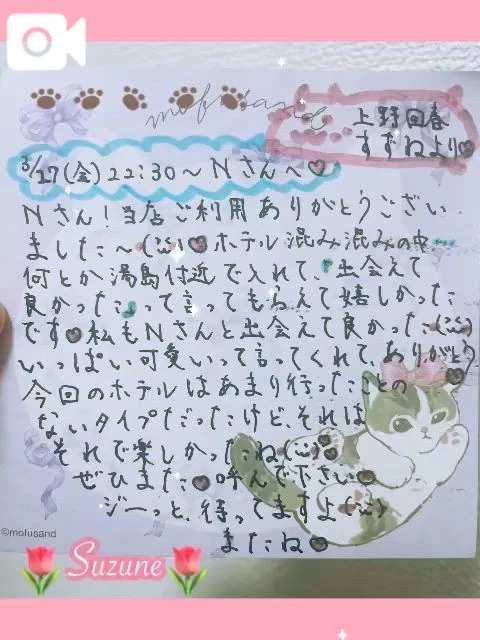 mofusand
上野回春
すずねより♡
3/27(金)22:30～Nさんへ♡
Nさん！当店ご利用ありがとうござい
ました～(¨̮)♡ホテル混み混みの中…
何とか湯島付近で入れて、出会えて
良かったよって言ってもらえて嬉しかった
です♡私もNさんと出会えて良かった(¨̮)
いっぱい可愛いって言ってくれて、ありがとう♡
今回のホテルはあまり行ったことの
ないタイプだったけど、それは
それで楽しかったね(¨̮)♡
ぜひまた♡呼んで下さい♡
ジーっと、待ってますよ(¨̮)
またね♡
©mofusand
Suzune